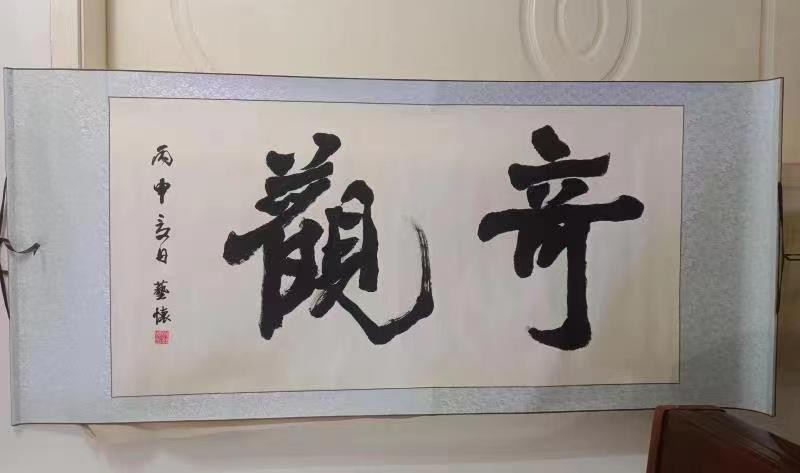 奇觀
丙申夏日 藝懷